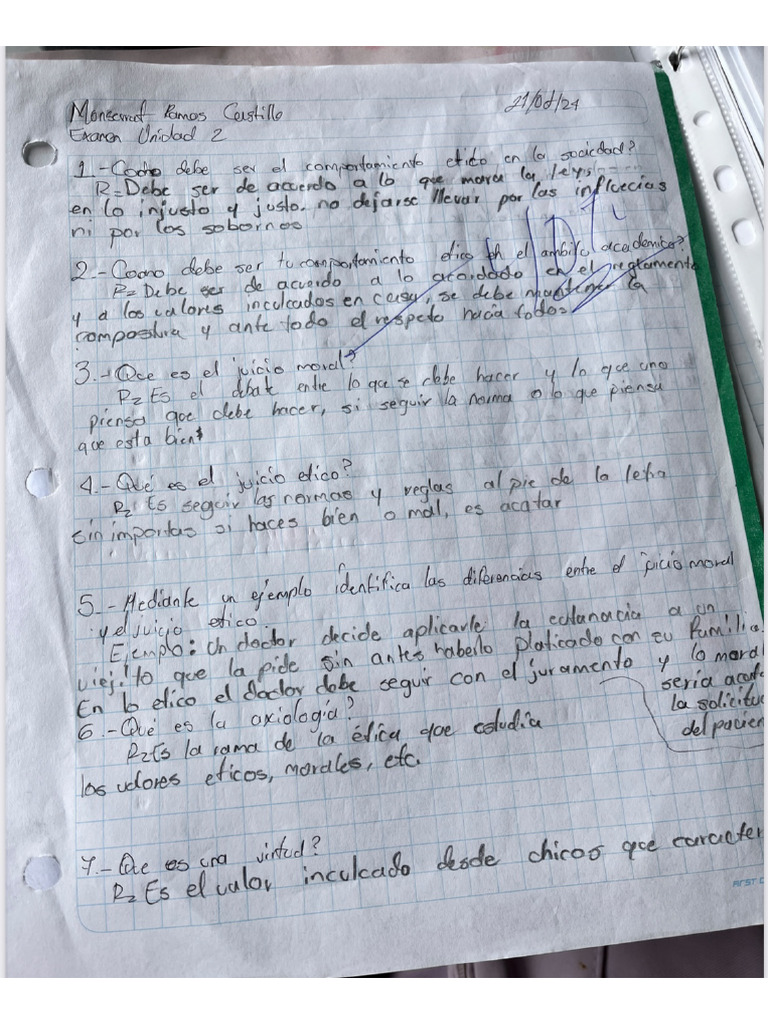 Monserrat Ramos Castillo
21/04/24
Examen Unidad 2
1.- Como debe ser el comportamiento etico en la sociedad?
R= Debe ser de acuerdo a lo que marca la leys
en lo injusto y justo. no dejarse llevar por las influecias
ni por los sobornos
2.- Como debe ser tu comportamiento etico en el ambito academico?
R= Debe ser de acuerdo a lo acordado en el reglamento
y a los valores inculcados en casa, se debe mantener la
compostura y ante todo el respeto hacia todos
3.- Que es el juicio moral?
R= Es el debate entre lo que se debe hacer y lo que uno
piensa que debe hacer, si seguir la norma o lo que piensa
que esta bien
4.- Qué es el juicio etico?
R= Es seguir las normas y reglas al pie de la letra
sin importas si haces bien o mal, es acatar
5.- Mediante un ejemplo identifica las diferencias entre el juicio moral
y el juicio etico.
Ejemplo: Un doctor decide aplicarle la eutanacia a un
viejito que la pide sin antes haberlo platicado con su familia.
En lo etico el doctor debe seguir con el juramento y lo moral
seria acata
la solicitud
del pacien
6.- Qué es la axiología?
R= Es la rama de la ética que estudia
los valores eticos, morales, etc.
7.- Que es una virtud?
R= Es el valor inculcado desde chicos que caracter
FIRST C